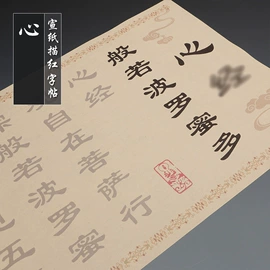 心
宣纸描红字帖
般若波罗蜜多
心
心经
自在菩萨行
般若波罗蜜
五